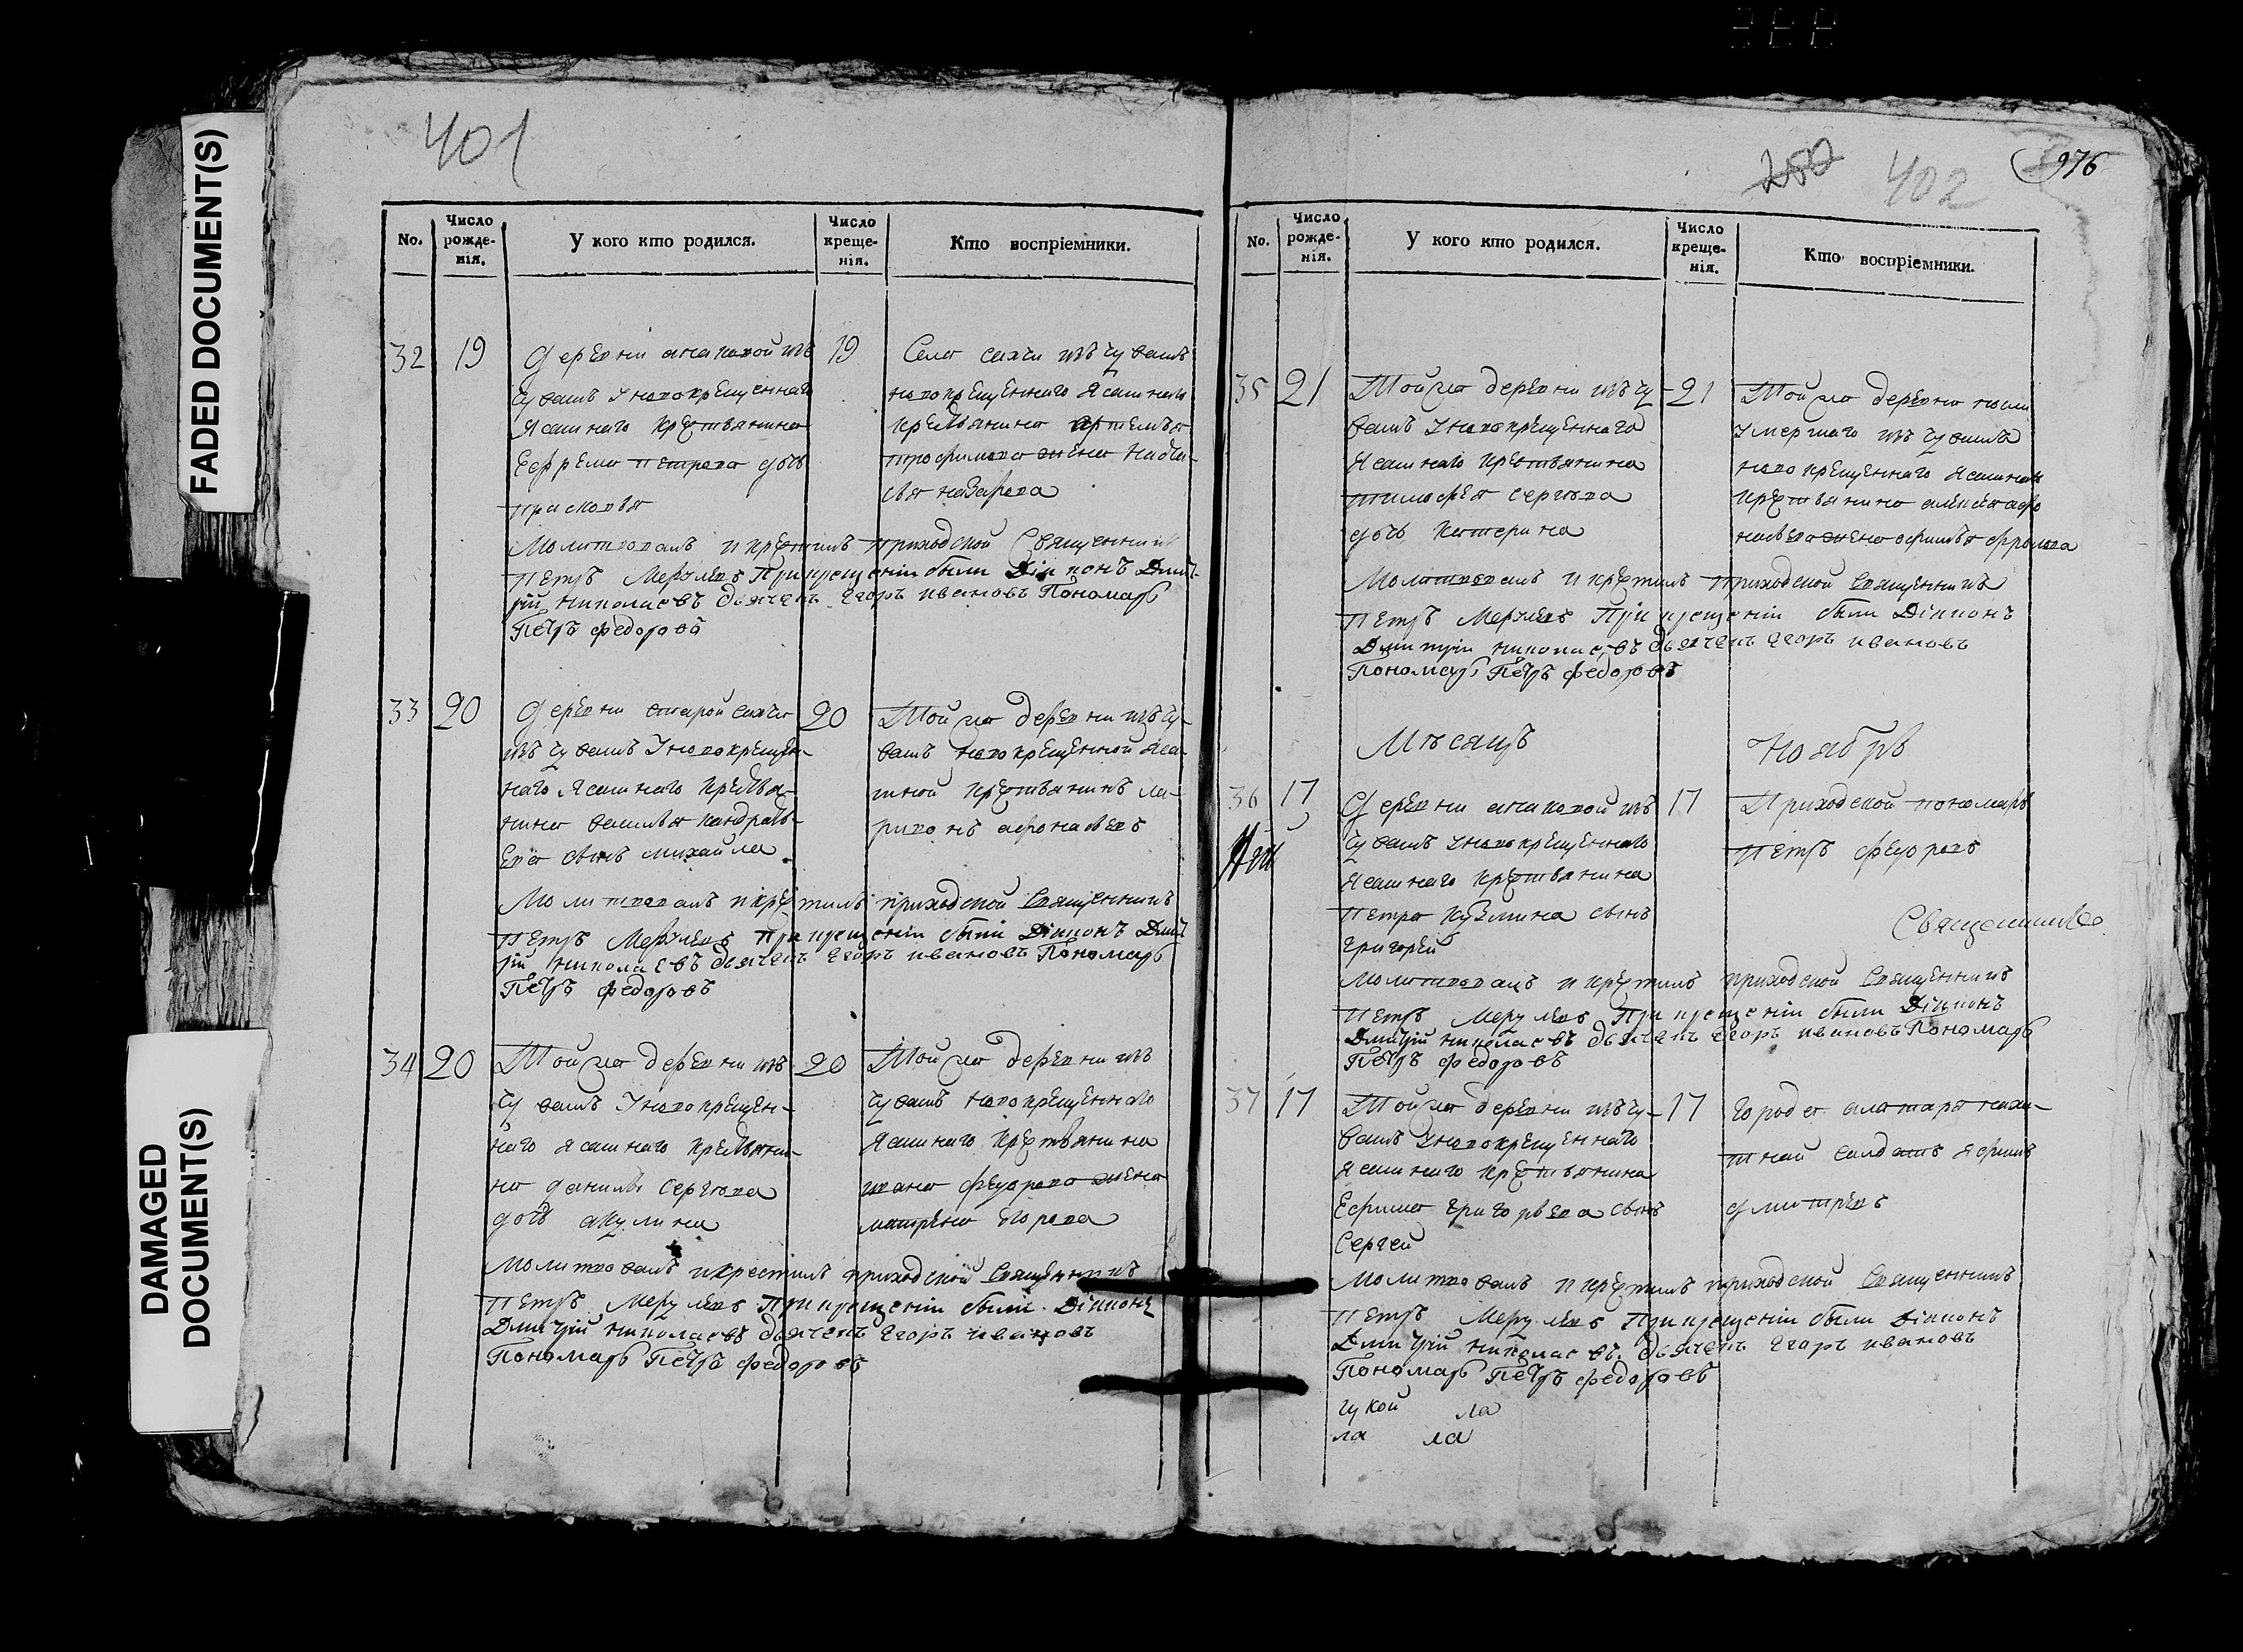 FADED DOCUMENT(S)
DAMAGED
DOCUMENT(S)
401
No.
Число рожде-нія.
У кого кто родился.
Число креще-нія.
Кто воспріемники.
32
19
Деревни анаковой изъ
чувашъ У новокрещеннаго
Ясашнаго крестьянина
Ефрема петрова дочь
прасковья
19
Села сахчи изъ чувашъ
новокрещеннаго Ясашнаго
крестьянина артемья
трофимова жена наста-
сья назарова
Молитвовалъ и крестилъ приходской Священникъ
Петръ При крещеніи были Діаконъ Дмит-
рій николаевъ дьячекъ Егоръ ивановъ Пономарь
Петръ федоровъ
33
20
Деревни старой сахчи
изъ чувашъ У новокрещен-
наго Ясашнаго крестья-
нина василья кандрать-
ева сынъ михайла
20
Той же деревни изъ чу-
вашъ новокрещенной яса-
шной крестьянинъ ла-
ривонъ афонасьевъ
Молитвовалъ и крестилъ приходской Священникъ
Петръ При крещеніи были Діаконъ Дмит-
рій николаевъ дьячекъ Егоръ ивановъ Пономарь
Петръ федоровъ
34
20
Той же деревни изъ
чувашъ У новокрещен-
наго Ясашнаго крестьяни-
на данилы сергѣева
дочь акулина
20
Той же деревни изъ
чувашъ новокрещеннаго
Ясашнаго крестьянина
ивана федорова жена
матрена Егорова
Молитвовалъ и крестилъ приходской Священникъ
Петръ При крещеніи были Діаконъ
Дмитрій николаевъ дьячекъ Егоръ ивановъ
Пономарь Петръ федоровъ
250
402
976
No.
Число рожде-нія.
У кого кто родился.
Число креще-нія.
Кто воспріемники.
35
21
Той же деревни изъ чу-
вашъ У новокрещеннаго
Ясашнаго крестьянина
тимофея сергѣева
дочь катерина
21
Той же деревни
умершаго изъ чувашъ
новокрещеннаго Ясашнаго
крестьянина алексея афо
насьева жена офимья фролова
Молитвовалъ и крестилъ приходской Священникъ
Петръ При крещеніи были Діаконъ
Дмитрій николаевъ дьячекъ Егоръ ивановъ
Пономарь Петръ федоровъ
Мѣсяцъ
Ноябрь
36
17
Деревни анаковой изъ
чувашъ У новокрещеннаго
Ясашнаго крестьянина
Петра Кузмина сынъ
Григорей
17
Приходской пономарь
Петръ федоровъ
Священникъ
Молитвовалъ и крестилъ приходской Священникъ
Петръ При крещеніи были Діаконъ
Дмитрій николаевъ дьячекъ Егоръ ивановъ Пономарь
Петръ федоровъ
37
17
Той же деревни изъ чу-
вашъ У новокрещеннаго
Ясашнаго крестьянина
Ефима григорьева сынъ
Сергей
17
города алатаря
салдатъ Яфимъ
дмитревъ
Молитвовалъ и крестилъ приходской Священникъ
Петръ При крещеніи были Діаконъ
Дмитрій николаевъ дьячекъ Егоръ ивановъ
Пономарь Петръ федоровъ
ла
ла ла